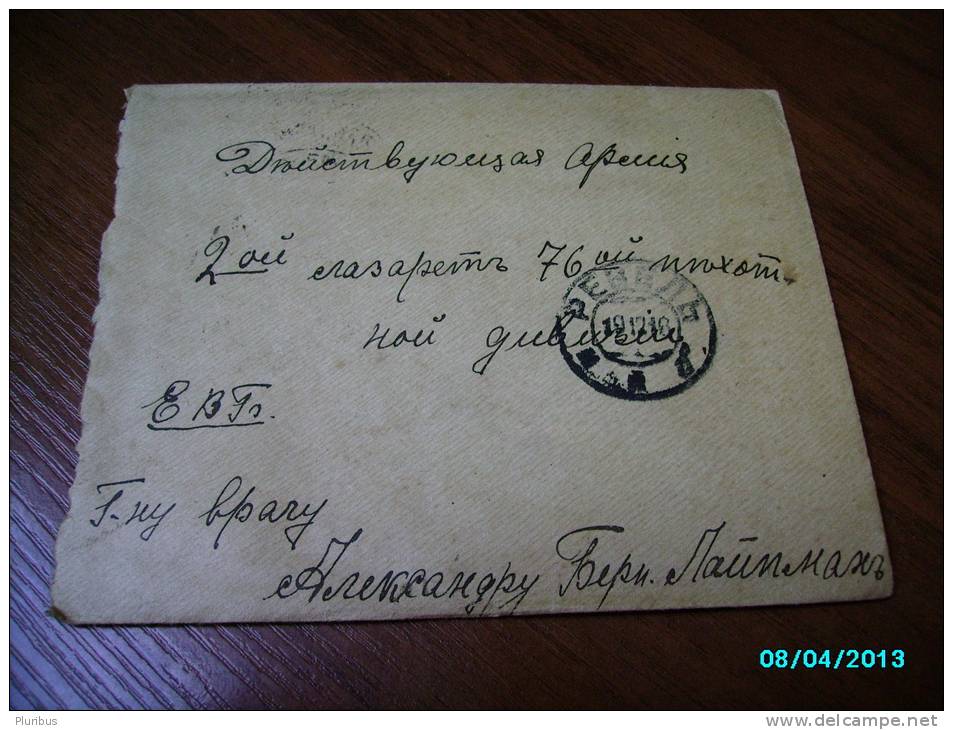 Дѣйствующая Армія
2ой лазаретъ 76ой пѣхот-
ной дивизіи
РЕВЕЛЬ
19.12.16
Е В Гб.
Г-ну врачу
Александру Берн. Лайпманъ
08/04/2013
Pluribus
www.delcampe.net